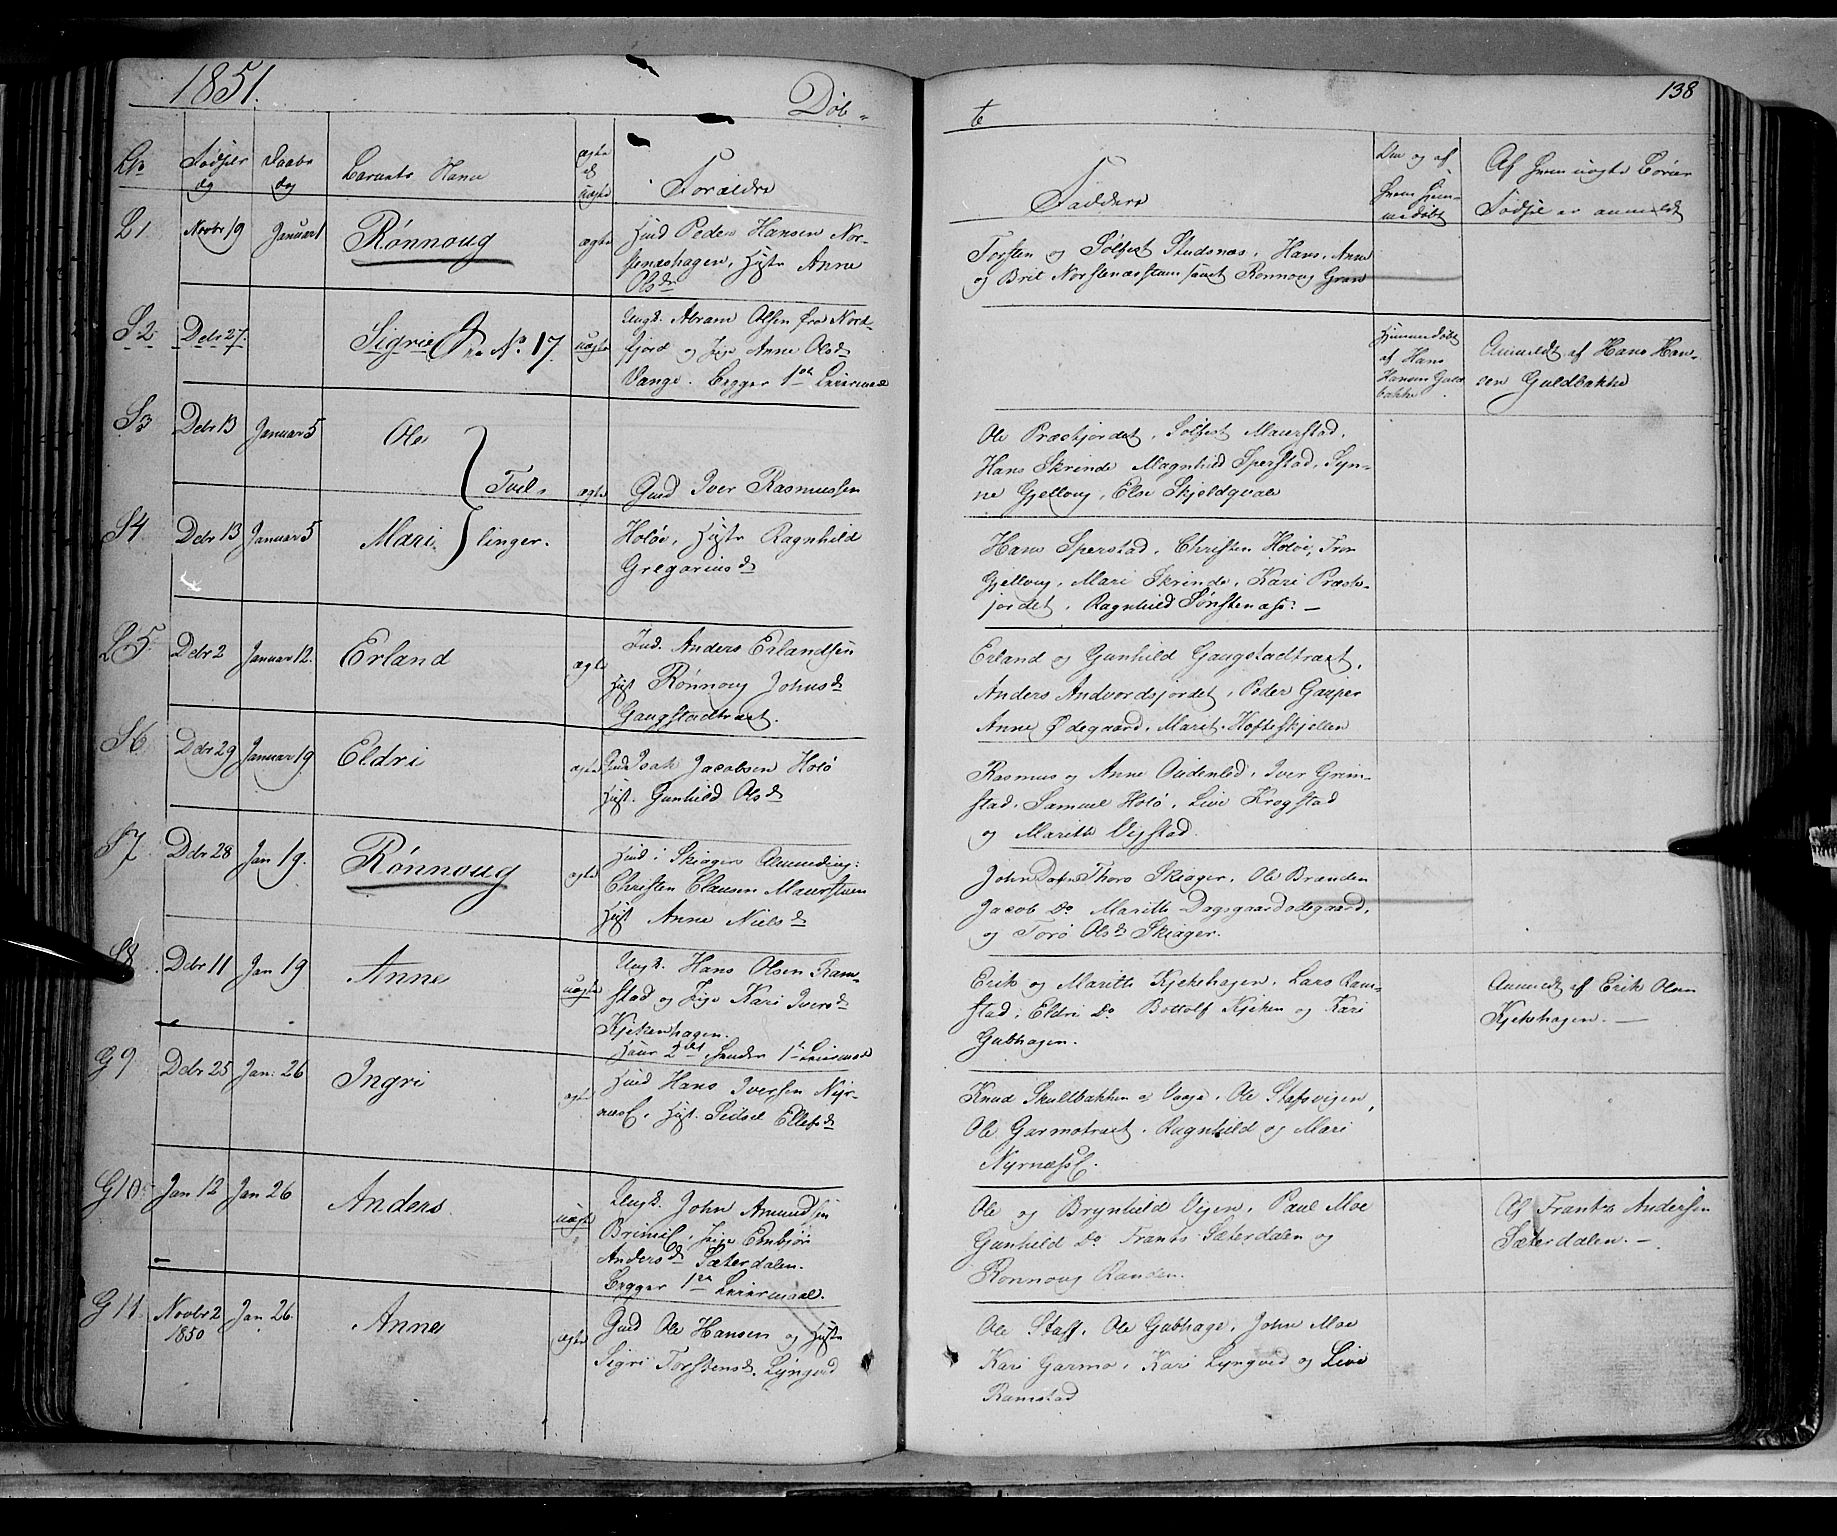 1851.
Døb-
t
138
No
Fødsels
dg
Daabs
dag
Barnets Navn
ægte
el
uægte
Forældre
Faddere
Af hvem uægte Børns
Fødsel er anmeldt
L 1
Novbr 19
Januar 1
Rønnoug
ægte
Huusd Peder Hansen Nor-
stenæshagen, Hust: Anne
Olsdr
Torsten og Sølfest Studsnæs, Hans, Anne
og Brit Norstenæs samt Rønnoug Gran
S 2
Debr 27.
Sigri
No 17.
uægte
Ungk. Abram Olsen fra Nord-
fjord og Pige Anne Olsdr
Vange. Begges 1ste Leiermaal
Hjemmedøbt
af Hans
Hansen Guld
bakke
Anmeldt af Hans Han-
sen Guldbakke
S 3
Debr 13
Januar 5
Ole
Tvil-
ægte
Gmd Iver Rasmussen
Ole Præstjordet, Sølfest Maurstad,
Hans Skrinde Magnhild Sperstad, Syn-
ne Gjelloug, Else Skjeldqvale
S 4
Debr 13
Januar 5
Mari
linger.
Holøe, Hustr Ragnhild
Gregariusdr
Hans Sperstad, Christen Holøe, Tron
Gjelloug, Mari Skrinde, Kari Præst-
jordet, Ragnhild Sørstenæs. —
L 5
Debr 2
Januar 12.
Erland
ægte
Ind. Anders Erlandsen
Hust Rønnoug Johnsdr
Gaugstadtræet.
Erland og Gunhild Gaugstadtræet,
Anders Andvordsjordet, Peder Gauper
Anne Ødegaard, Marit Hofteskjellen
S 6
Debr 29
Januar 19
Eldri
ægte
Gmd Isak Jacobsen Holø
Hust. Gunhild Olsdr
Rasmus og Anne Oudenled, Iver Grim-
stad, Samuel Holø, Live Krogstad
og Marith Vigstad.
S 7
Debr 28
Jan 19.
Rønnoug
ægte
Huusd i Skiagers Alminding:
Christen Clausen Maurstuen
Hust Anne Nielsdr
John Thoro Skiager, Ole Branden
Jacob Do Marith Dagsgaardødegaard,
og Toro Olsdr Skiager.
S 8
Debr 11
Jan 19
Anne
uægte
Ungk. Hans Olsen Ram-
stad og Pige Kari Iversdr
Kjækenhagen.
Haur 2det hendes 1ste Leiermaal
Erik og Marith Kjekehagen, Lars Ram-
stad, Eldri Do Bottolf Kjeken og Kari
Gubhagen.
Anmeldt af Erik Olsen
Kjekehagen. —
G 9
Debr 25
Jan: 26
Ingri
ægte
Huusd Hans Iversen Nyr-
næs, Hust. Sidsel Ellefsdr
Knud Skultbakken af Vaage, Ole Stafsvigen,
Ole Garmotræet, Ragnhild og Mari
Nyrnæs.
G 10
Jan 12
Jan 26
Anders
uægte
Ungk. John Amundsen
Brimi, Pige Embjør
Andersdr Sæterdalen.
Begges 1ste Leiermaal.
Ole og Brynhild Vigen, Paul Moe
Gunhild Do Frants Sæterdalen og
Rønnoug Randen.
Af Frants Andersen
Sæterdalen. —
G 11
Novbr 2
1850
Jan 26
Anne
ægte
Gmd Ole Hansen og Hustr
Sigri Torstensdr Lyngved
Ole Staff, Ole Gubhage, John Moe
Kari Garmo, Kari Lyngved og Live
Ramstad